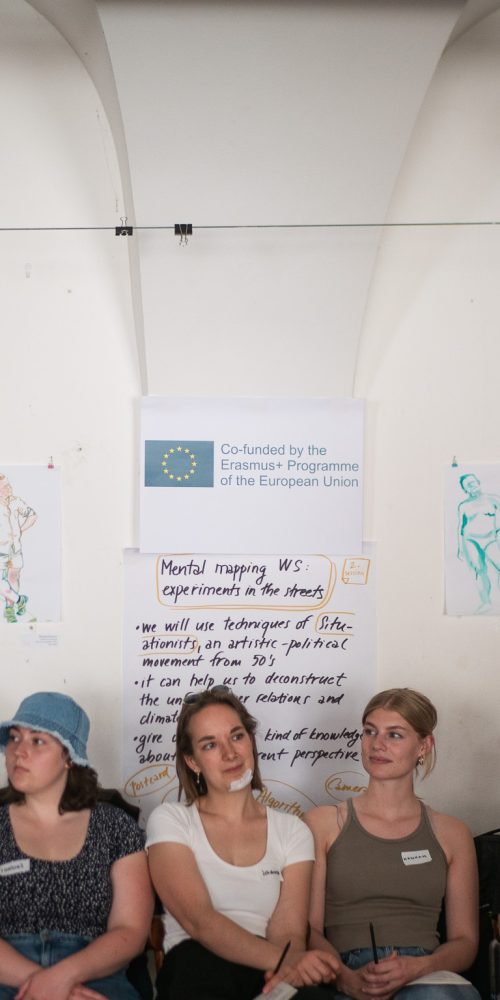 Co-funded by the
Erasmus+ Programme
of the European Union
Mental mapping WS:
experiments in the streets
2.
• we will use techniques of Situ-
ationists, an artistic-political
movement from 50's
• it can help us to deconstruct
the un er relations and
climat
• give kind of knowledge
about rent perspective
Postcard
Algorithm
Camer